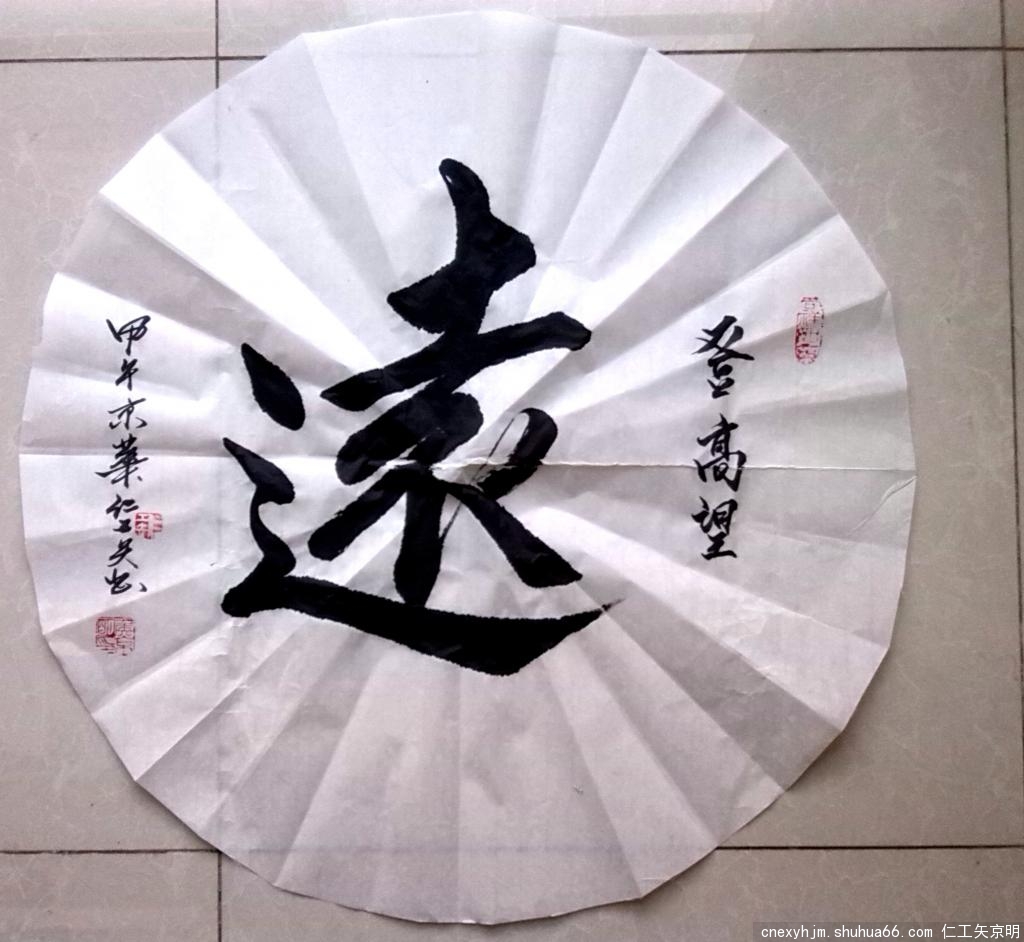 登高望
遠
甲午京華仁工矢书
cnexyhjm.shuhua66.com 仁工矢京明